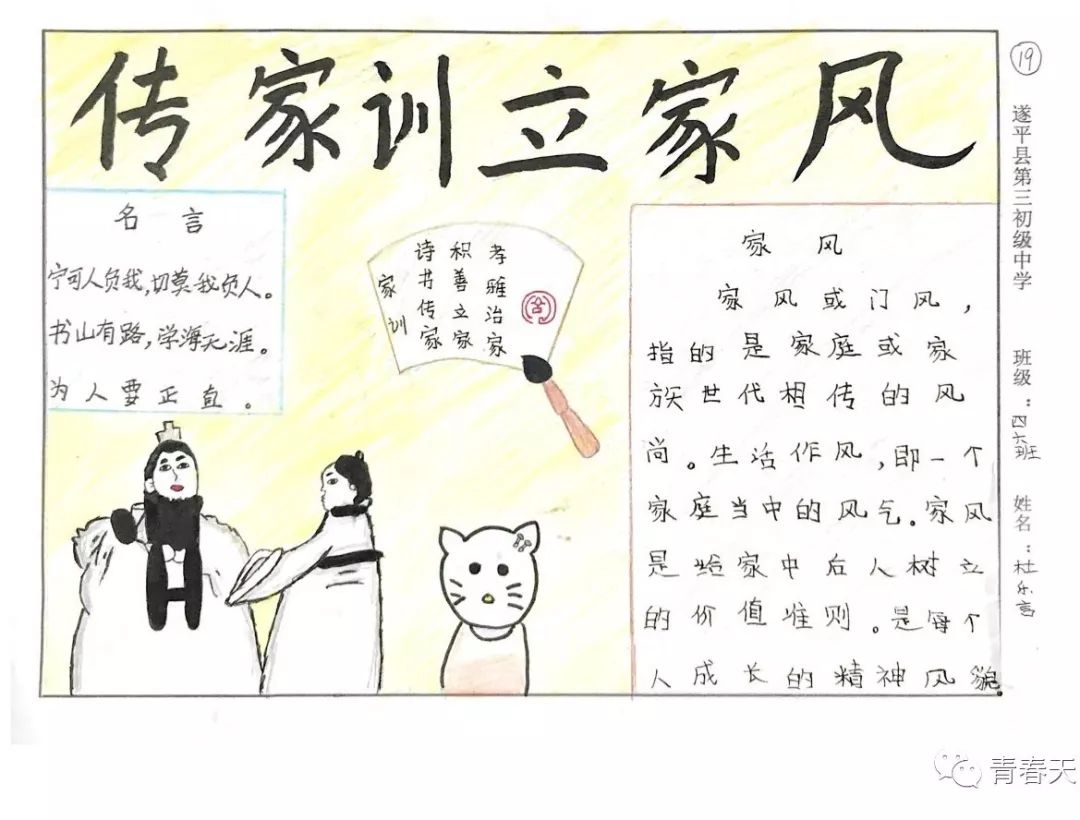 传家训立家风
名言
宁可人负我,切莫我负人。
书山有路,学海无涯。
为人要正直。
家训
诗书传家
积善立家
孝雅治家
家风
家风或门风,
指的是家庭或家
族世代相传的风
尚。生活作风,即一个
家庭当中的风气。家风
是给家中后人树立
的价值准则。是每个
人成长的精神风貌。
19
遂平县第三初级中学
班级：四六班
姓名：杜乐言
青春天